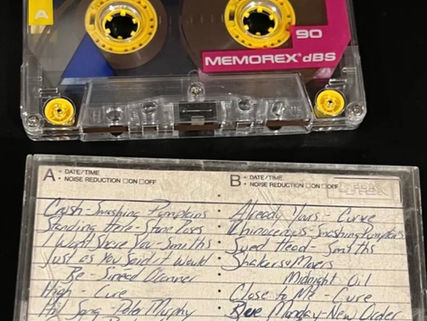 A
90
MEMOREX dBS
A • DATE/TIME
• NOISE REDUCTION □ON □OFF
B • DATE/TIME
• NOISE REDUCTION □ON □OFF
Crush - Smashing Pumpkins
Standing Here - Stone Roses
I Want You - Smiths
Just as You Said it Would
Be - Sinead OConner
High - Cure
Song - Peter Murphy
Already Yours - Curve
Rhinocerous - Smashing Pumpkins
Sued Head - Smiths
Shakers & Movers
Midnight Oil
Close to Me - Cure
Blue Monday - New Order